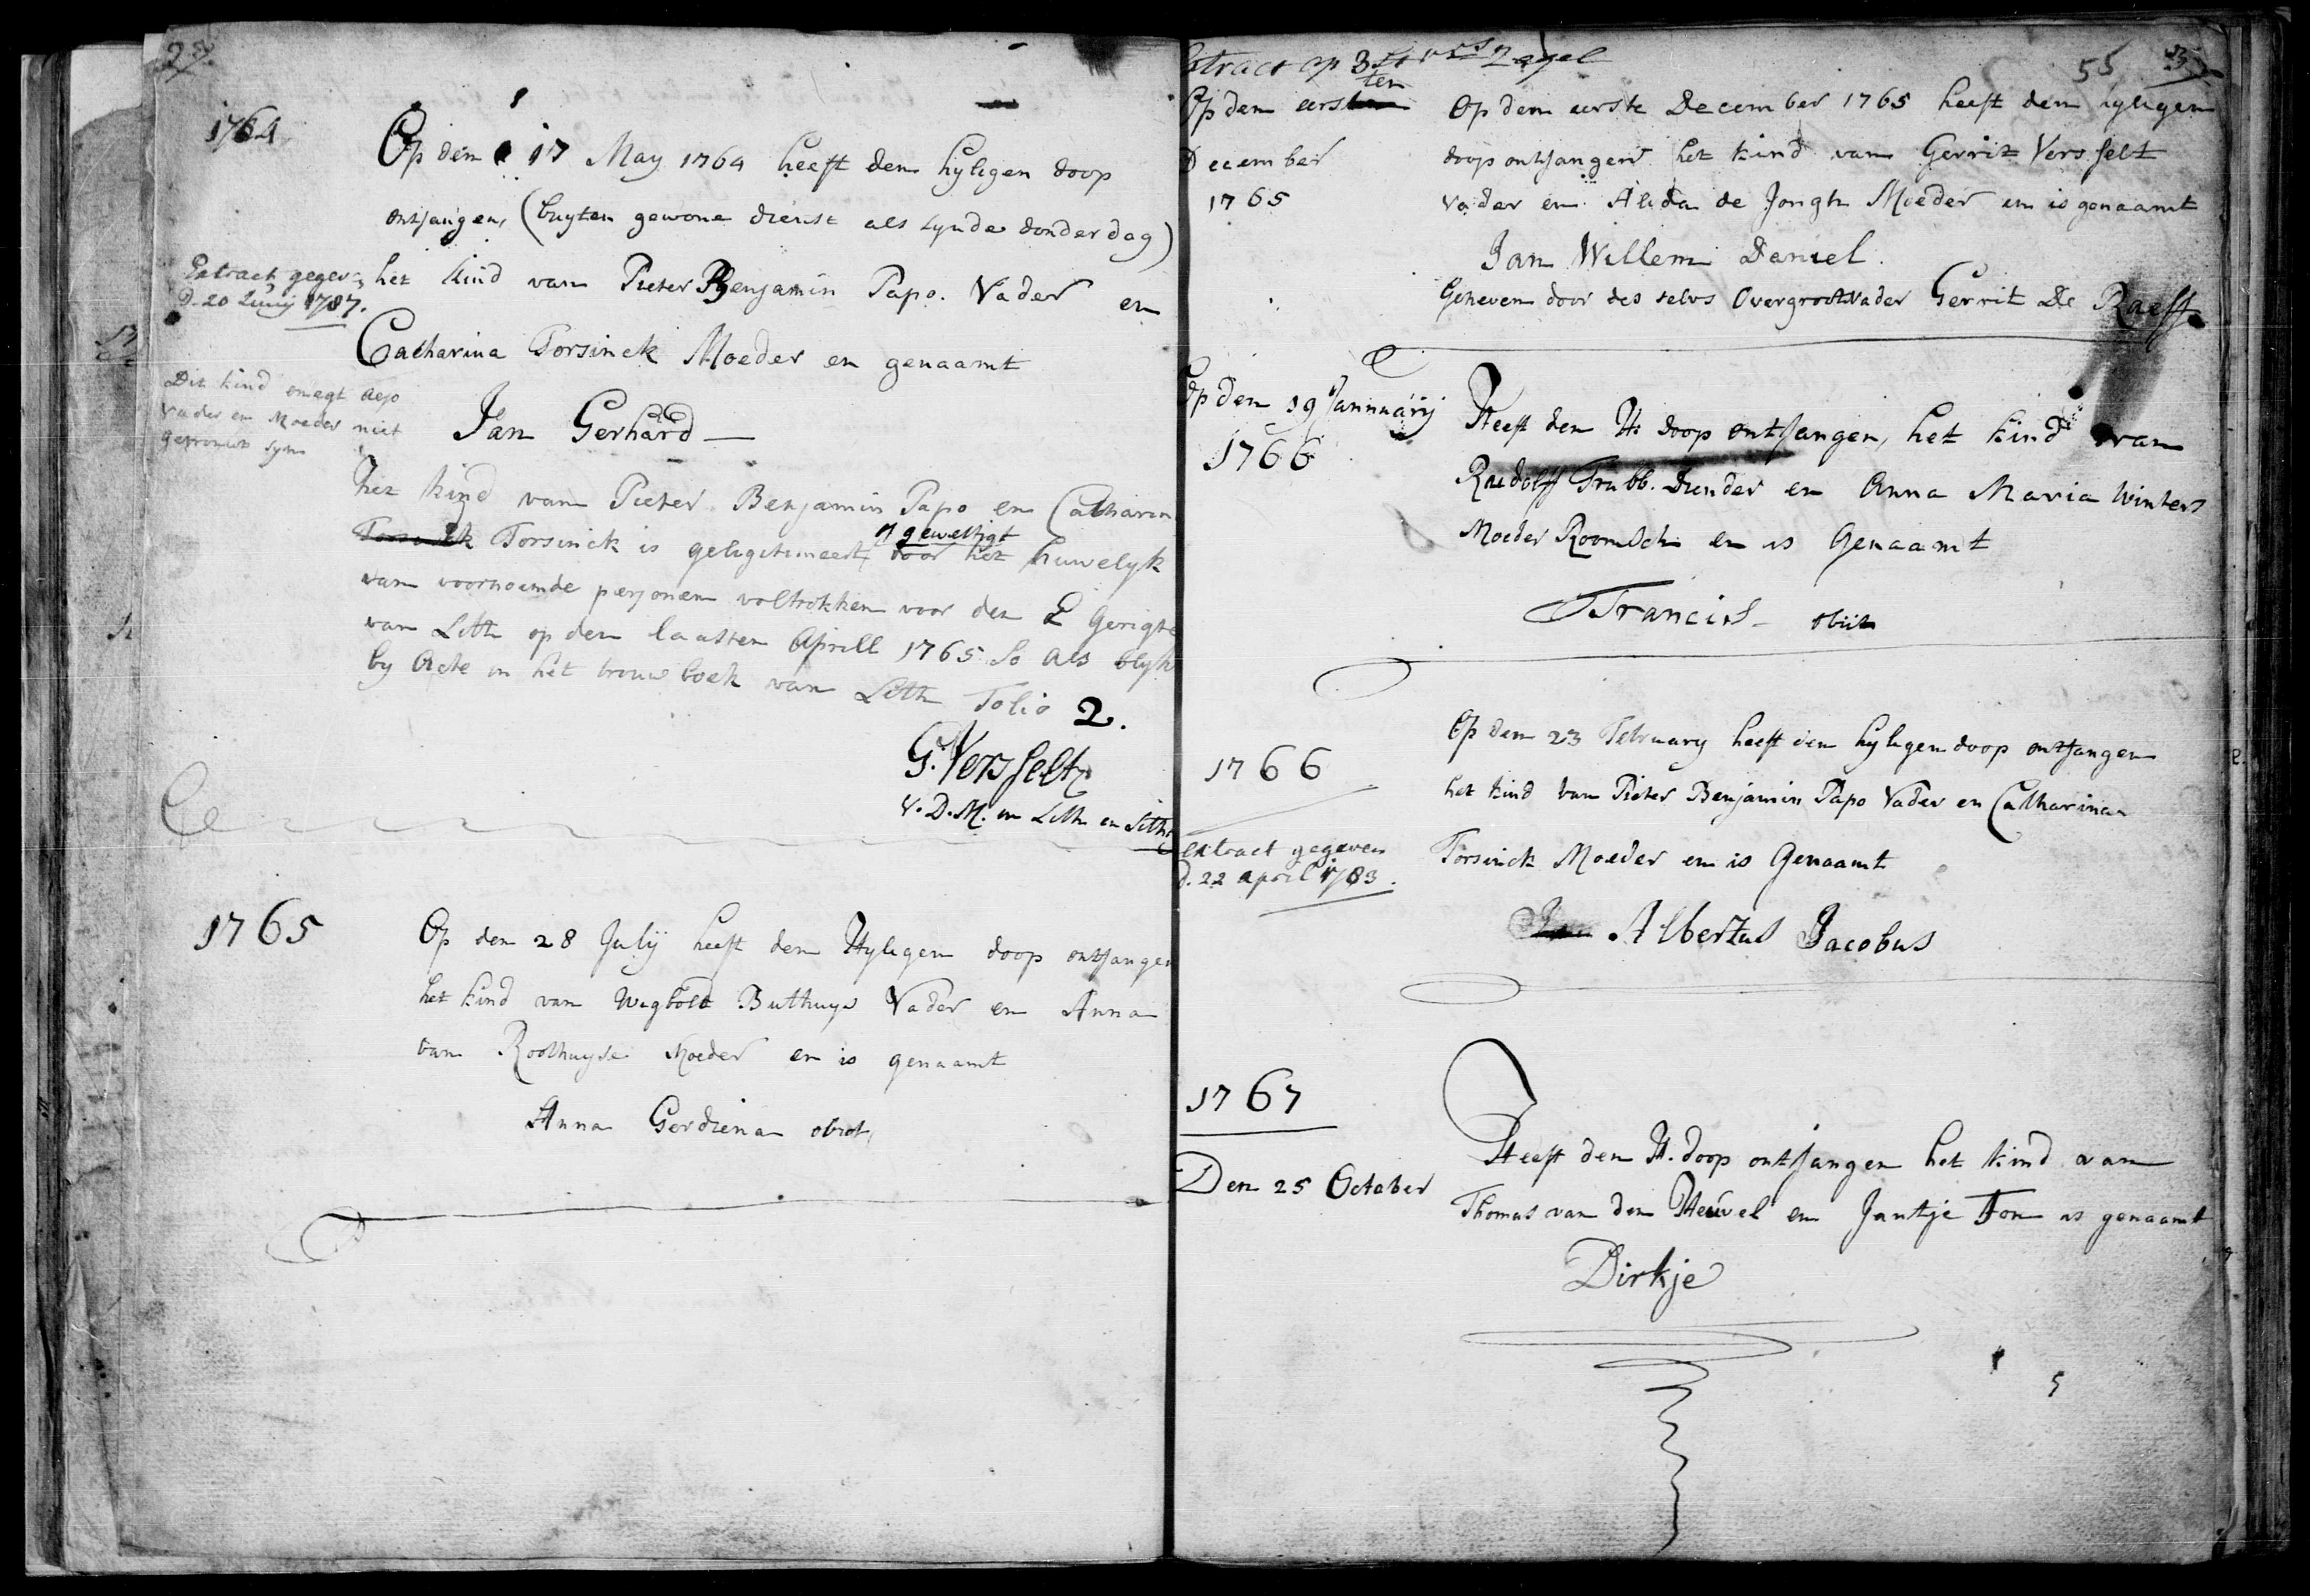 1764
Op den 17 May 1764 heeft den hyligen doop
ontfangen, (buyten gewone dienst als synde donderdag)
Extract gegev:
d. 20 Junij 1787.
het kind van Pieter Benjamin Papo. Vader en
Catharina Torsinck Moeder en genaamt
Dit kind omegt also
Vader en Moeder niet
getrouwt syn
Jan Gerhard
het kind van Pieter Benjamin Papo en Catharin
Torsinck is gelegitimeert, of gewettigt door het huwelyk
van voornoemde personen voltrokken voor den E Gerigte
van Lith op den laasten Aprill 1765 so als blykt
by Acte in het trouwboek van Lith Folio 2.
G. Versfelt
V.D.M. in Lith en Lith
1765
Op den 28 Julÿ heeft den Hyligen doop ontfangen
het kind van Wigbold Buthuys Vader en Anna
van Roolhuyse Moeder en is genaamt
Anna Gerdiena obiit,
Extract op 3 zegel
55
Op den eersten
December
1765
Op den eerste December 1765 heeft den hyligen
doop ontfangen het kind van Gerrit Versfelt
Vader en Alida de Jongh Moeder en is genaamt
Jan Willem Daniel.
Geheven door des selvs Overgrootvader Gerrit De Raeff
Op den 19 Jannuarÿ
1766
Heeft den H. doop ontfangen, het kind van
Rudolff Trubb. Dunder en Anna Maria Winters
Moeder Roomsch en is Genaamt
Francis obiit
1766
Op den 23 February heeft den hyligen doop ontfangen
het kind van Pieter Benjamin Papo Vader en Catharina
Torsinck Moeder en is Genaamt
extract gegeven
d. 22 april 1783.
Albertus Jacobus
1767
Den 25 October
Heeft den H. doop ontfangen het kind van
Thomas van den Heuvel en Jantje Ton is genaamt
Dirkje